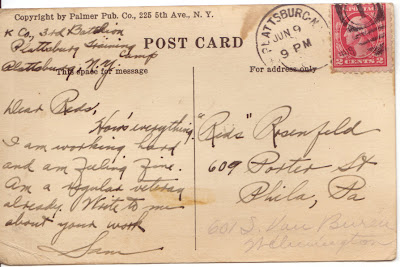 Copyright by Palmer Pub. Co., 225 5th Ave., N. Y.
K Co, 3rd Battalion
Plattsburg Training
Camp
Plattsburg, N.Y.
POST CARD
This space for message
For address only
PLATTSBURGH
JUN 9
9 PM
2 CENTS 2
Dear Reds,
How's everything.
I am working hard
and am feeling fine.
Am a regular veteran
already. Write to me
about your work
Sam
"Reds" Rosenfeld
609 Porter St
Phila, Pa
601 S. Van Buren
Wilmington